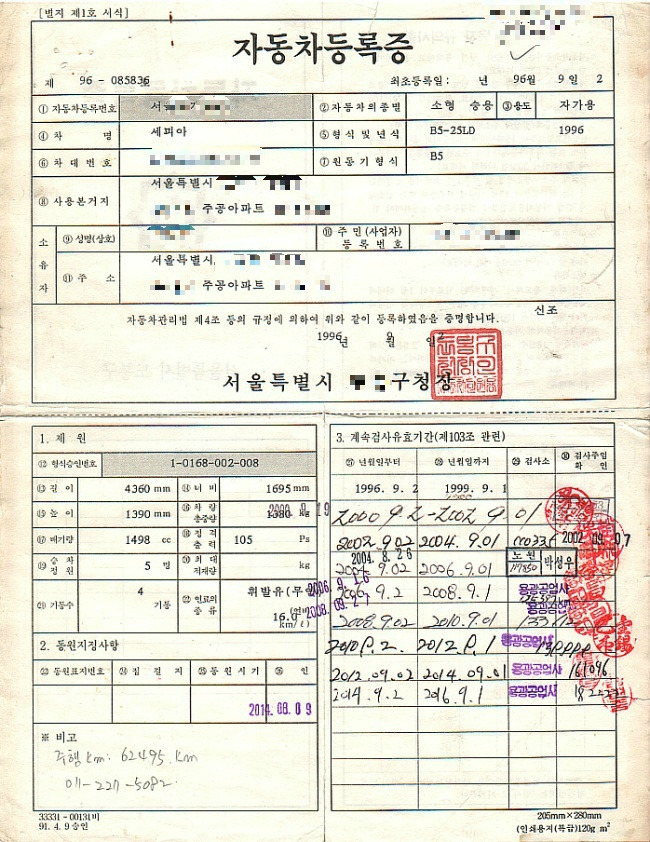 [별지 제1호 서식]
자동차등록증
제 96 - 085836 호
최초등록일: 년 96월 9일 2
① 자동차등록번호 서울 ② 자동차의종별 소형 승용 ③ 용도 자가용
④ 차 명 세피아 ⑤ 형식 및 년식 B5-25LD 1996
⑥ 차대번호 ⑦ 원동기형식 B5
⑧ 사용본거지 서울특별시
주공아파트
소유자 ⑨ 성명(상호) ⑩ 주민(사업자)등록번호
⑪ 주 소 서울특별시
주공아파트
자동차관리법 제4조 등의 규정에 의하여 위와 같이 등록하였음을 증명합니다. 신조
1996년 9월 2일
서울특별시 구청장
1. 제 원
⑫ 형식승인번호 1-0168-002-008
⑬ 길이 4360 mm ⑭ 너비 1695 mm
⑮ 높이 1390 mm ⑯ 차량총중량 1380 kg
⑰ 배기량 1498 cc ⑱ 정격출력 105 Ps
⑲ 승차정원 5 명 ⑳ 최대적재량 kg
㉑ 기통수 4 기통 ㉒ 연료의종류 휘발유(무연) (연비 16.0 km/ℓ)
2004.8.26
2006.9.16
2008.09.27
2. 동원지정사항
㉓ 동원표지번호 ㉔ 집결지 ㉕ 동원시기 ㉖ 인
2014.08.09
※ 비고
주행km: 62495 km
011-227-5082
3. 계속검사유효기간(제103조 관련)
㉗ 년월일부터 ㉘ 년월일까지 ㉙ 검사소 ㉚ 검사주임확인
1996. 9. 2 1999. 9. 1
2000 9.2 - 2002 9.01
2002.9.02 2004.9.01 2002.09.07
2004.9.02 2006.9.01 노원 박성우
2006.9.2 2008.9.1 용광공업사
2008.9.02 2010.9.01 용광공업사
2010.9.2. 2012.9.1 용광공업사
2012.09.02 2014.09.01 용광공업사 161096
2014.9.2 2016.9.1 용광공업사
33331 - 00131비
91. 4. 9 승인
205mm×280mm
(인쇄용지(특급)120g m²